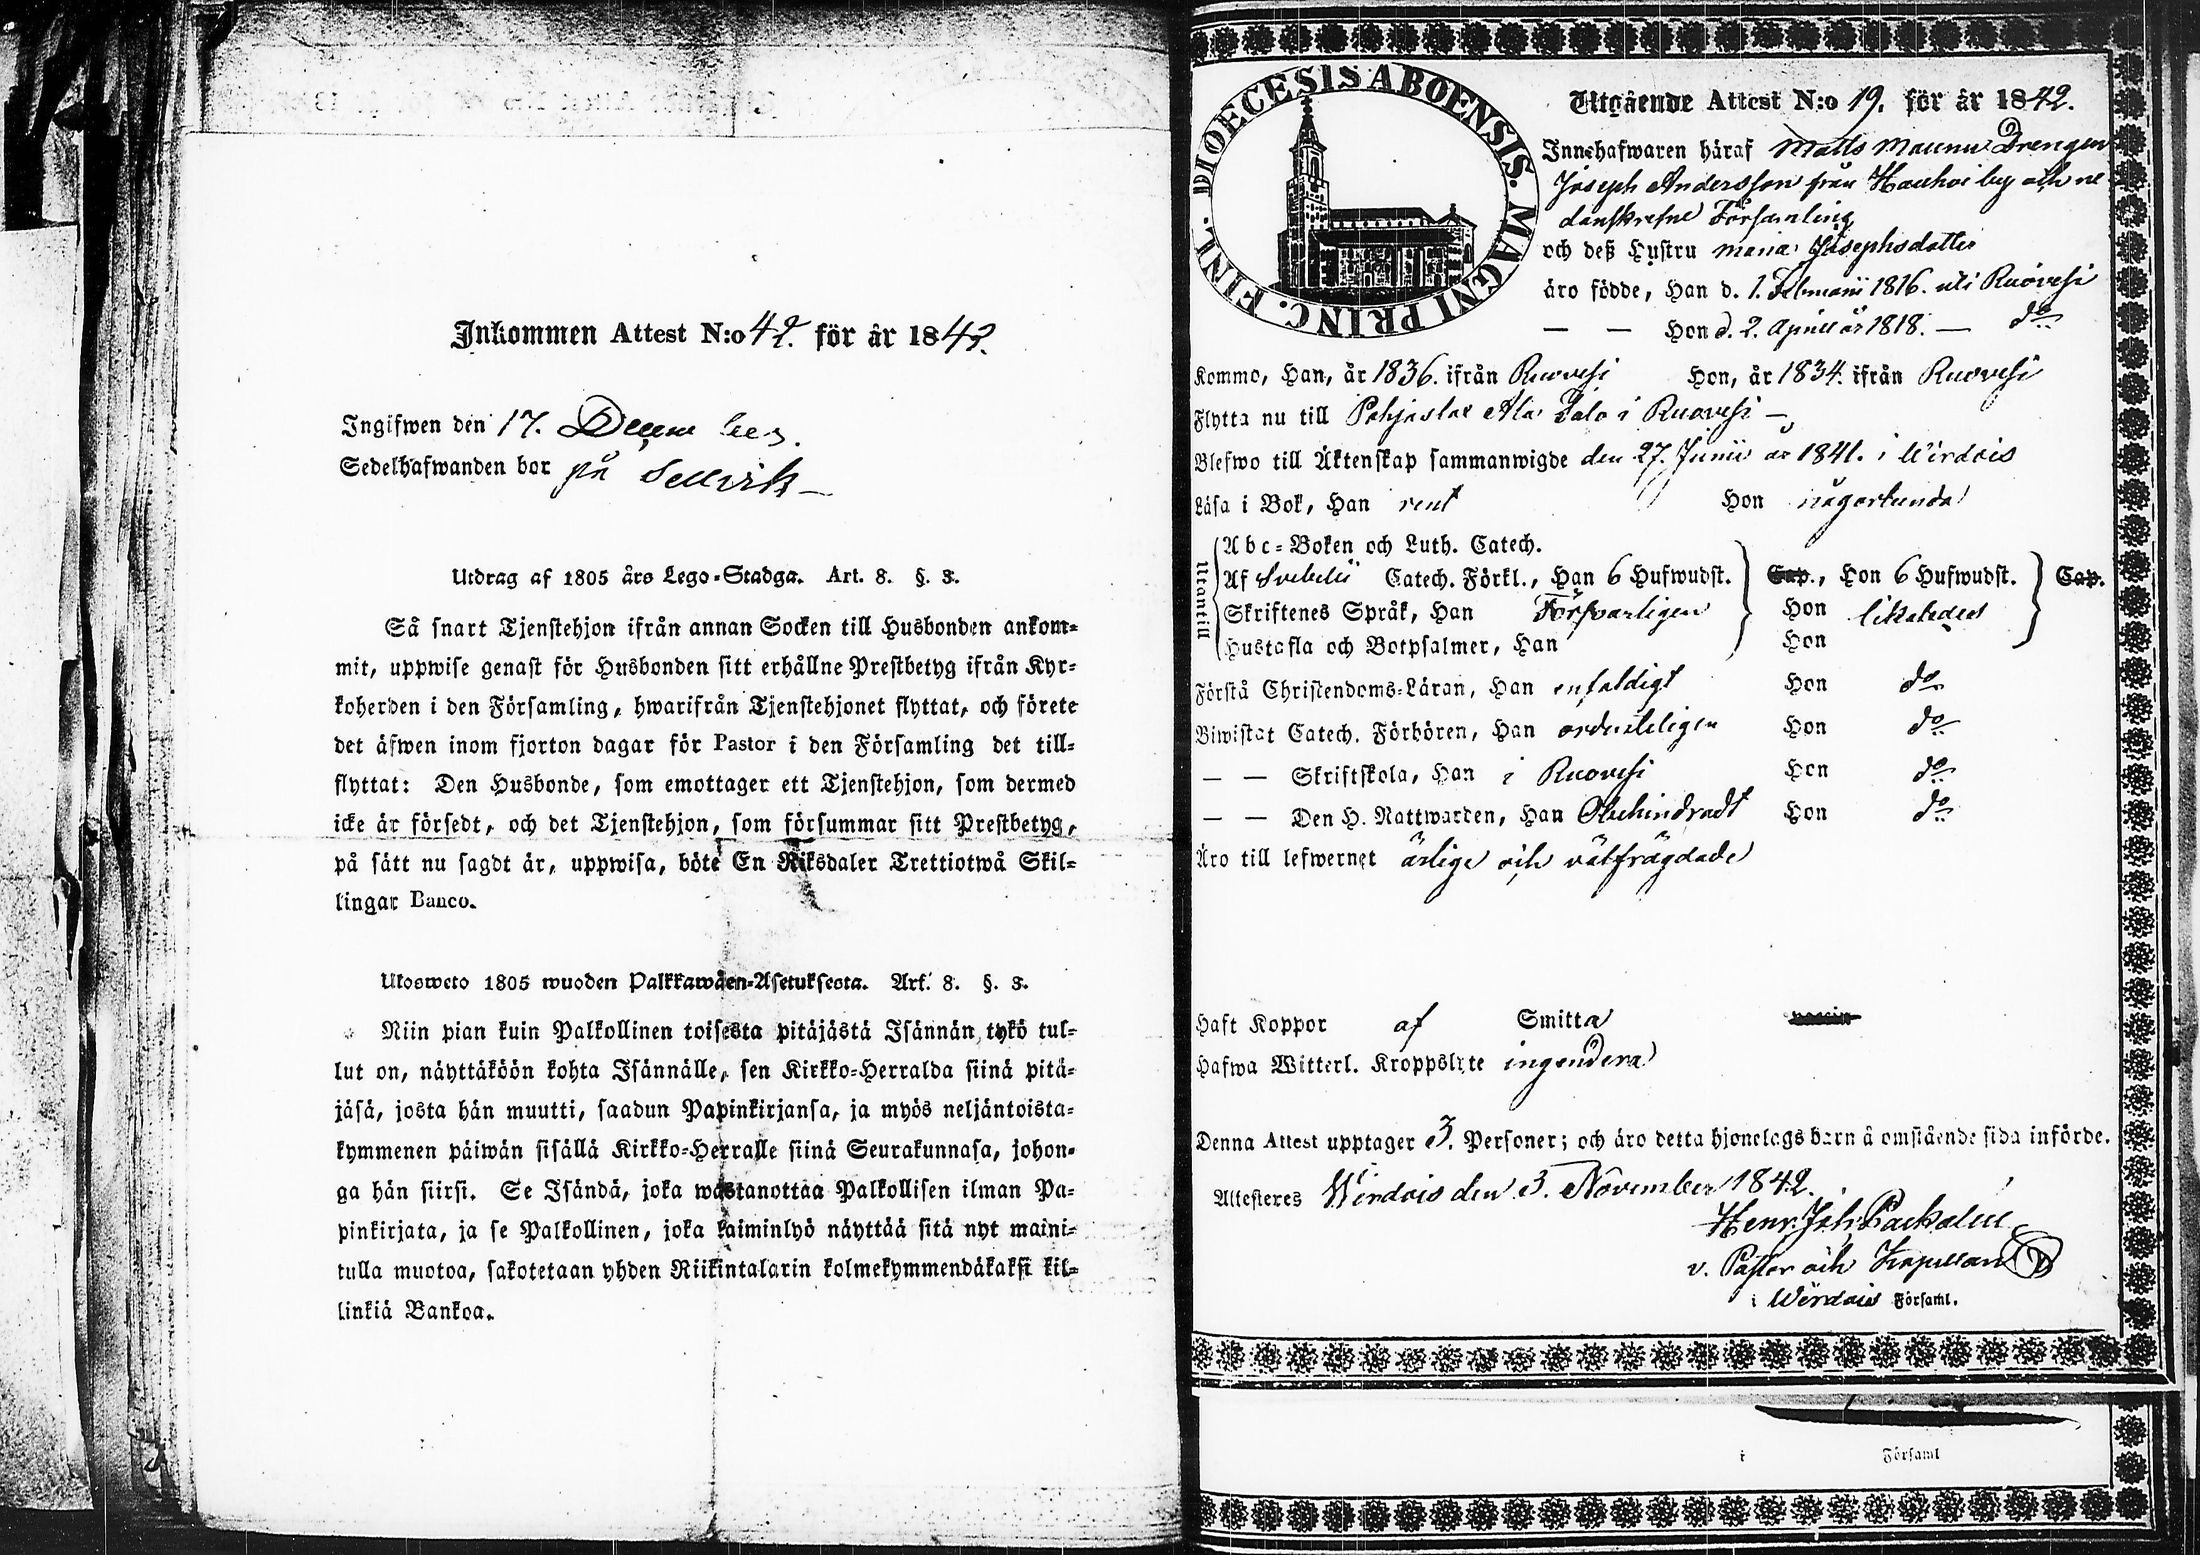 Inkommen Attest N:o 42. för år 1842.
Ingifwen den 17. December.
Sedelhafwanden bor på Sellvik
Utdrag af 1805 års Lego-Stadga. Art. 8. §. 3.
Så snart Tjenstehjon ifrån annan Socken till Husbonden ankom-
mit, uppwise genast för Husbonden sitt erhållne Prestbetyg ifrån Kyr-
koherden i den Församling, hwarifrån Tjenstehjonet flyttat, och förete
det äfwen inom fjorton dagar för Pastor i den Församling det till-
flyttat: Den Husbonde, som emottager ett Tjenstehjon, som dermed
icke är försedt, och det Tjenstehjon, som försummar sitt Prestbetyg,
på sätt nu sagdt är, uppwisa, böte En Riksdaler Trettiotwå Skil-
lingar Banco.
Utosweto 1805 wuoden Palkkawäen-Asetuksesta. Art. 8. §. 3.
Niin pian kuin Palkollinen toisesta pitäjästä Isännän tykö tul-
lut on, näyttäköön kohta Isännälle, sen Kirkko-Herralda siinä pitä-
jäsä, josta hän muutti, saadun Papinkirjansa, ja myös neljäntoista-
kymmenen päiwän sisällä Kirkko-Herralle siinä Seurakunnasa, johon-
ga hän siirsi. Se Isändä, joka wastanottaa Palkollisen ilman Pa-
pinkirjata, ja se Palkollinen, joka laiminlyö näyttää sitä nyt maini-
tulla muotoa, sakotetaan yhden Riikintalarin kolmekymmendäkaksi kil-
linkiä Bankoa.
DIOECESIS ABOENSIS. MAGNI PRINC. FINL.
Utgående Attest N:o 19. för år 1842.
Innehafwaren häraf Matts Maunu Drengen
Joseph Andersson från Hauhoi by och ne
danskrefne Församling
och deß Hustru Maria Josephsdotter
äro födde, Han d. 1. Februarii 1816. uti Ruovesi
— — Hon d. 2. April år 1818. — do
Komne, Han, år 1836. ifrån Ruovesi Hon, år 1834. ifrån Ruovesi
Flytta nu till Pohjaslax Ala Talo i Ruovesi —
Blefwo till Äktenskap sammanwigde den 27. Junii år 1841. i Wirdois
Läsa i Bok, Han rent Hon någorlunda
Utantill
Abc-Boken och Luth. Catech.
Af Svebelii Catech. Förkl., Han 6 Hufwudst. Cap., Hon 6 Hufwudst. Cap.
Skriftenes Språk, Han Försvarligen Hon likaledes
Hustafla och Botpsalmer, Han Hon
Förstå Christendoms-Läran, Han enfaldigt Hon do
Biwistat Catech. Förhören, Han ordenteligen Hon do
— — Skriftskola, Han i Ruovesi Hon do
— — Den H. Nattwarden, Han Obehindradt Hon do
Äro till lefwernet ärlige och välfrägdade
Haft Koppor af Smitta
Hafwa Witterl. Kroppslyte ingendera
Denna Attest upptager 3. Personer; och äro detta hjonelags barn å omstående sida införde.
Attesteres Wirdois den 3. November 1842.
Henr. Joh.
v. Pastor och Kapellan
i Wirdois Församl.
i Församl